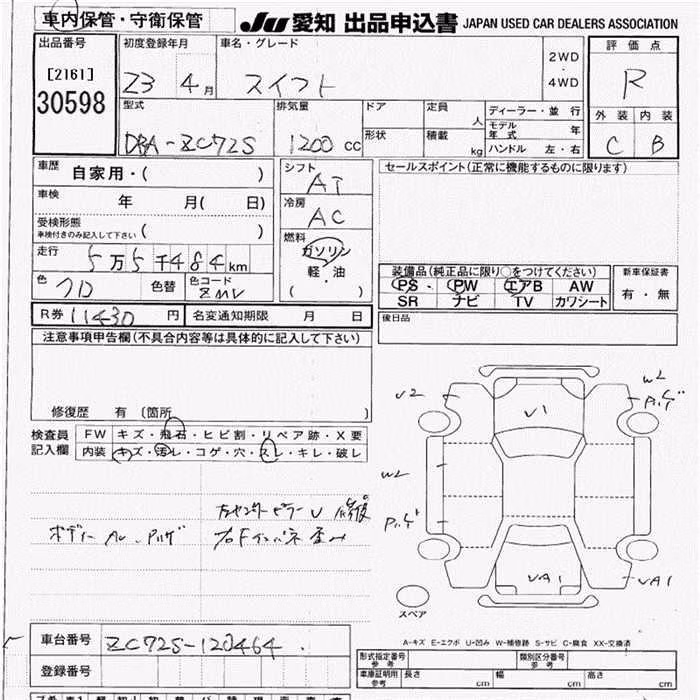 車内保管・守衛保管
JU 愛知 出品申込書 JAPAN USED CAR DEALERS ASSOCIATION
出品番号 初度登録年月 車名・グレード 評価点
[2161] 23 4月 スイフト 2WD・4WD R
30598
型式 排気量 ドア 定員 人 ディーラー・並行 外装 内装
モデル年式 年
DBA-ZC72S 1200cc 形状 積載 kg ハンドル 左・右 C B
車歴 自家用・( ) シフト AT セールスポイント(正常に機能するものに限ります)
車検 年 月( 日) 冷房 AC
受検形態 ( )
車検付きのみ記入して下さい
燃料 ガソリン
走行 5万5千484km 軽・油
( )
装備品(純正品に限り○をつけてください) 新車保証書
色 クロ 色替 色コード ZMV
PS・ PW エアB AW 有・無
SR ナビ TV カワシート
R券 11430円 名変通知期限 月 日 後日品
注意事項申告欄(不具合内容等は具体的に記入して下さい)
修復歴 有 (箇所 )
検査員 FW キズ・飛石・ヒビ割・リペア跡・X要
記入欄 内装 キズ・汚レ・コゲ・穴・スレ・キレ・破レ
U2
W2
V1
W2
VA1
VA1
スペア
左センターピラー U 修復
ボデー AU
右Fインパネ歪み
A-キズ E-エクボ U-凹み W-補修跡 S-サビ C-腐食 XX-交換済
車台番号 ZC72S-120464
登録番号
形式指定番号 参考 類別区分番号 参考
車庫証明用 参考 長さ cm 幅 cm 高さ cm